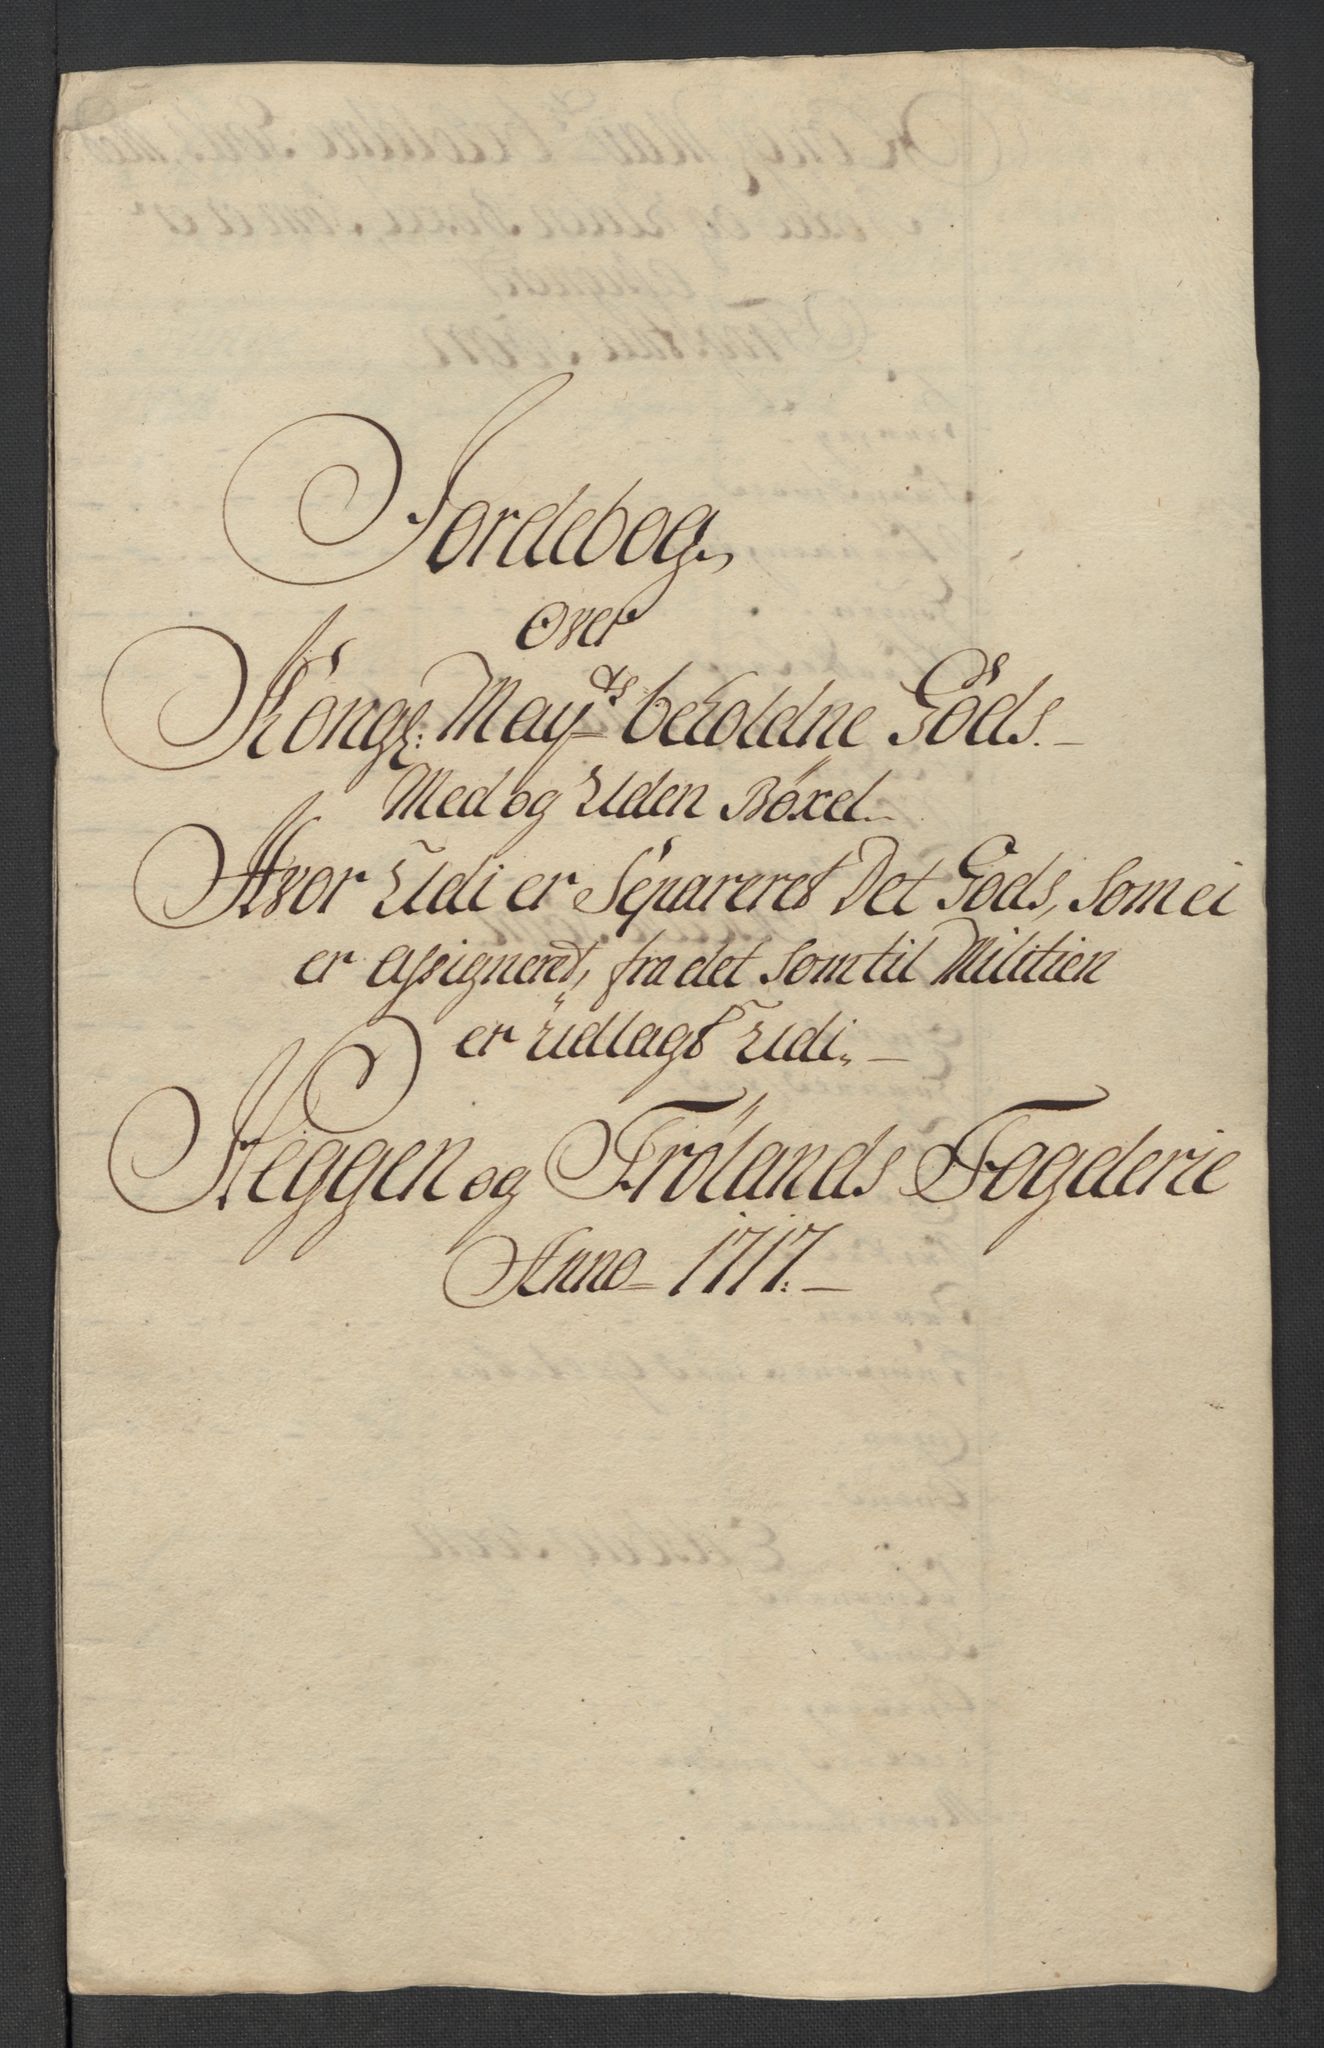 Jordebog,
Over
Kongl: May<sup>ts</sup> beholdne Gods.
Med og Uden Böxel.
Hvor Udi er Separeret Det Gods, som ei
er assigneret, fra det som til Militien
er Udlagt Udi.
Heggen og Frölands Fogderie
Anno 1717.